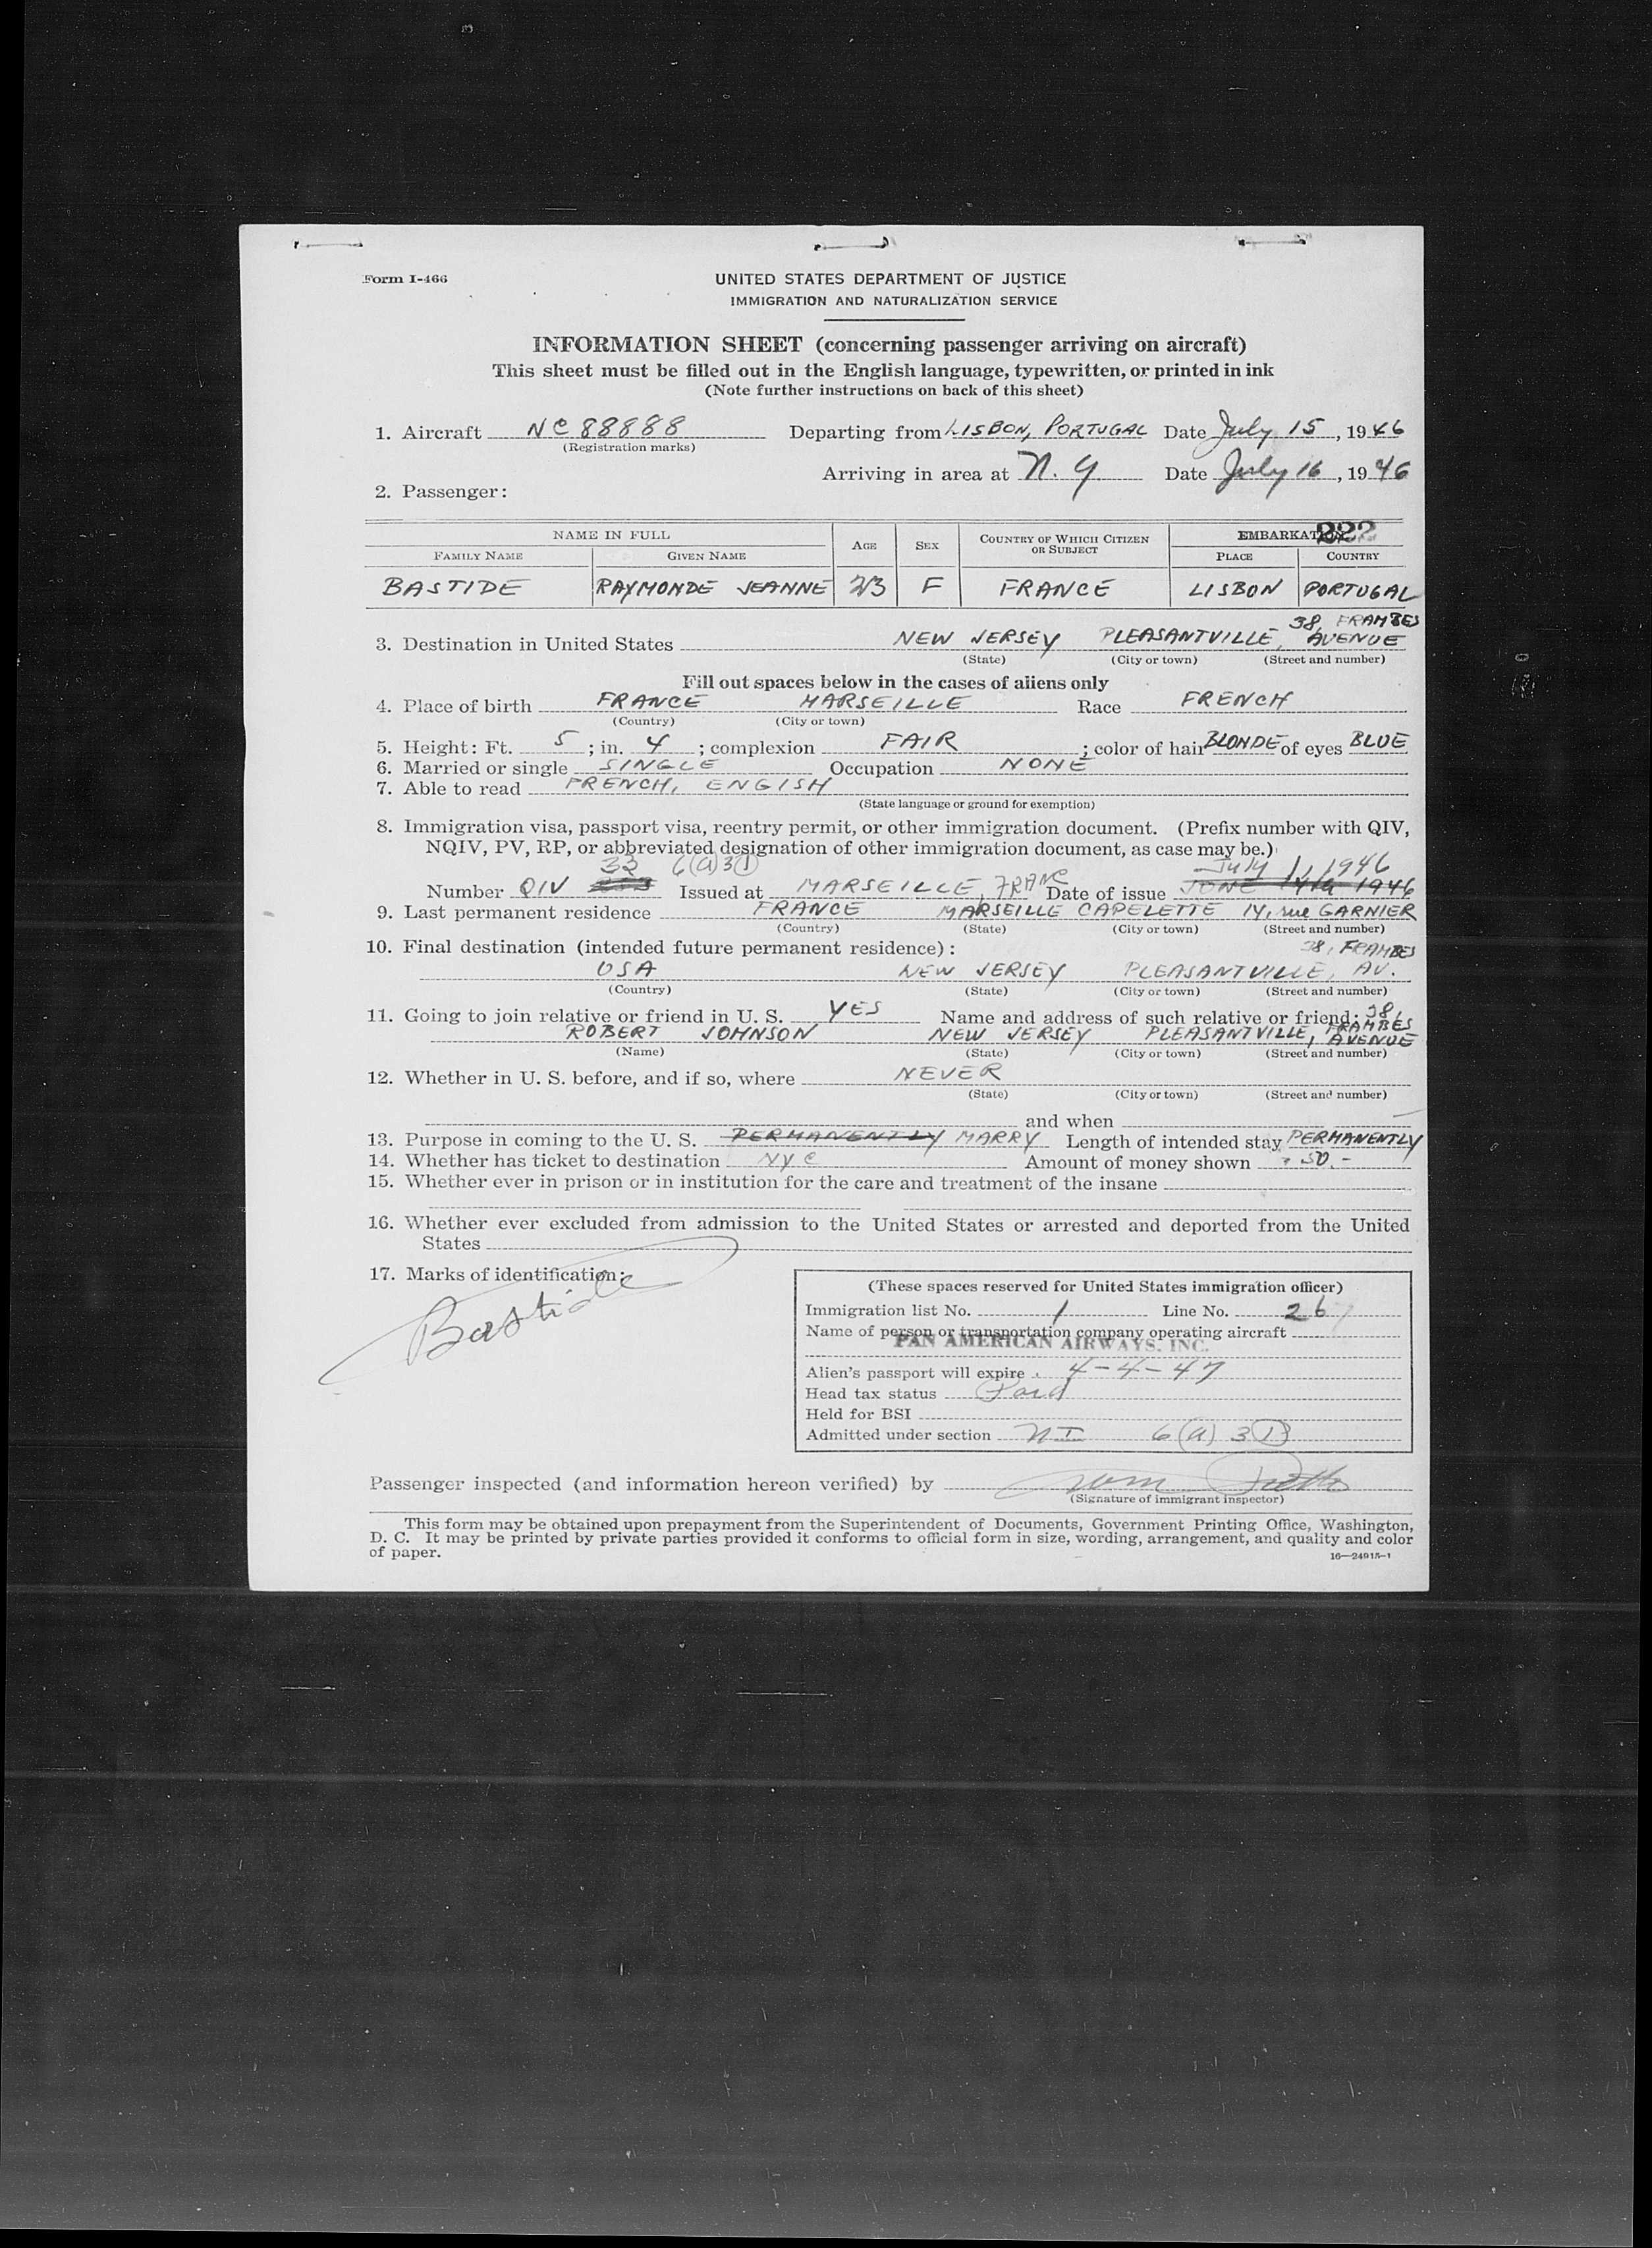 Form I-466
UNITED STATES DEPARTMENT OF JUSTICE
IMMIGRATION AND NATURALIZATION SERVICE
INFORMATION SHEET (concerning passenger arriving on aircraft)
This sheet must be filled out in the English language, typewritten, or printed in ink
(Note further instructions on back of this sheet)
1. Aircraft NC 88888 Departing from LISBON, PORTUGAL Date July 15, 1946
(Registration marks)
Arriving in area at N.Y. Date July 16, 1946
2. Passenger:
NAME IN FULL AGE SEX COUNTRY OF WHICH CITIZEN OR SUBJECT EMBARKATION 222
FAMILY NAME GIVEN NAME PLACE COUNTRY
BASTIDE RAYMONDE JEANNE 23 F FRANCE LISBON PORTUGAL
38, FRAMBES
3. Destination in United States NEW JERSEY PLEASANTVILLE, AVENUE
(State) (City or town) (Street and number)
Fill out spaces below in the cases of aliens only
4. Place of birth FRANCE MARSEILLE Race FRENCH
(Country) (City or town)
5. Height: Ft. 5; in. 4; complexion FAIR; color of hair BLONDE of eyes BLUE
6. Married or single SINGLE Occupation NONE
7. Able to read FRENCH, ENGISH
(State language or ground for exemption)
8. Immigration visa, passport visa, reentry permit, or other immigration document. (Prefix number with QIV,
NQIV, PV, RP, or abbreviated designation of other immigration document, as case may be.)
32 6(a)3 July 1, 1946
Number QIV Issued at MARSEILLE, FRANC Date of issue JUNE 1946
9. Last permanent residence FRANCE MARSEILLE CAPELETTE 14, rue GARNIER
(Country) (State) (City or town) (Street and number)
10. Final destination (intended future permanent residence): 38, FRAMBES
USA NEW JERSEY PLEASANTVILLE, AV.
(Country) (State) (City or town) (Street and number)
11. Going to join relative or friend in U. S. YES Name and address of such relative or friend: 38,
ROBERT JOHNSON NEW JERSEY PLEASANTVILLE, FRAMBES AVENUE
(Name) (State) (City or town) (Street and number)
12. Whether in U. S. before, and if so, where NEVER
(State) (City or town) (Street and number)
and when
13. Purpose in coming to the U. S. PERMANENTLY MARRY Length of intended stay PERMANENTLY
14. Whether has ticket to destination NYC Amount of money shown 50.-
15. Whether ever in prison or in institution for the care and treatment of the insane
16. Whether ever excluded from admission to the United States or arrested and deported from the United
States
17. Marks of identification:
Bastide
(These spaces reserved for United States immigration officer)
Immigration list No. 1 Line No. 26
Name of person or transportation company operating aircraft
PAN AMERICAN AIRWAYS. INC.
Alien's passport will expire 4-4-47
Head tax status Paid
Held for BSI
Admitted under section NI 6(a)3
Passenger inspected (and information hereon verified) by
(Signature of immigrant inspector)
This form may be obtained upon prepayment from the Superintendent of Documents, Government Printing Office, Washington,
D. C. It may be printed by private parties provided it conforms to official form in size, wording, arrangement, and quality and color
of paper.
16—24915-1